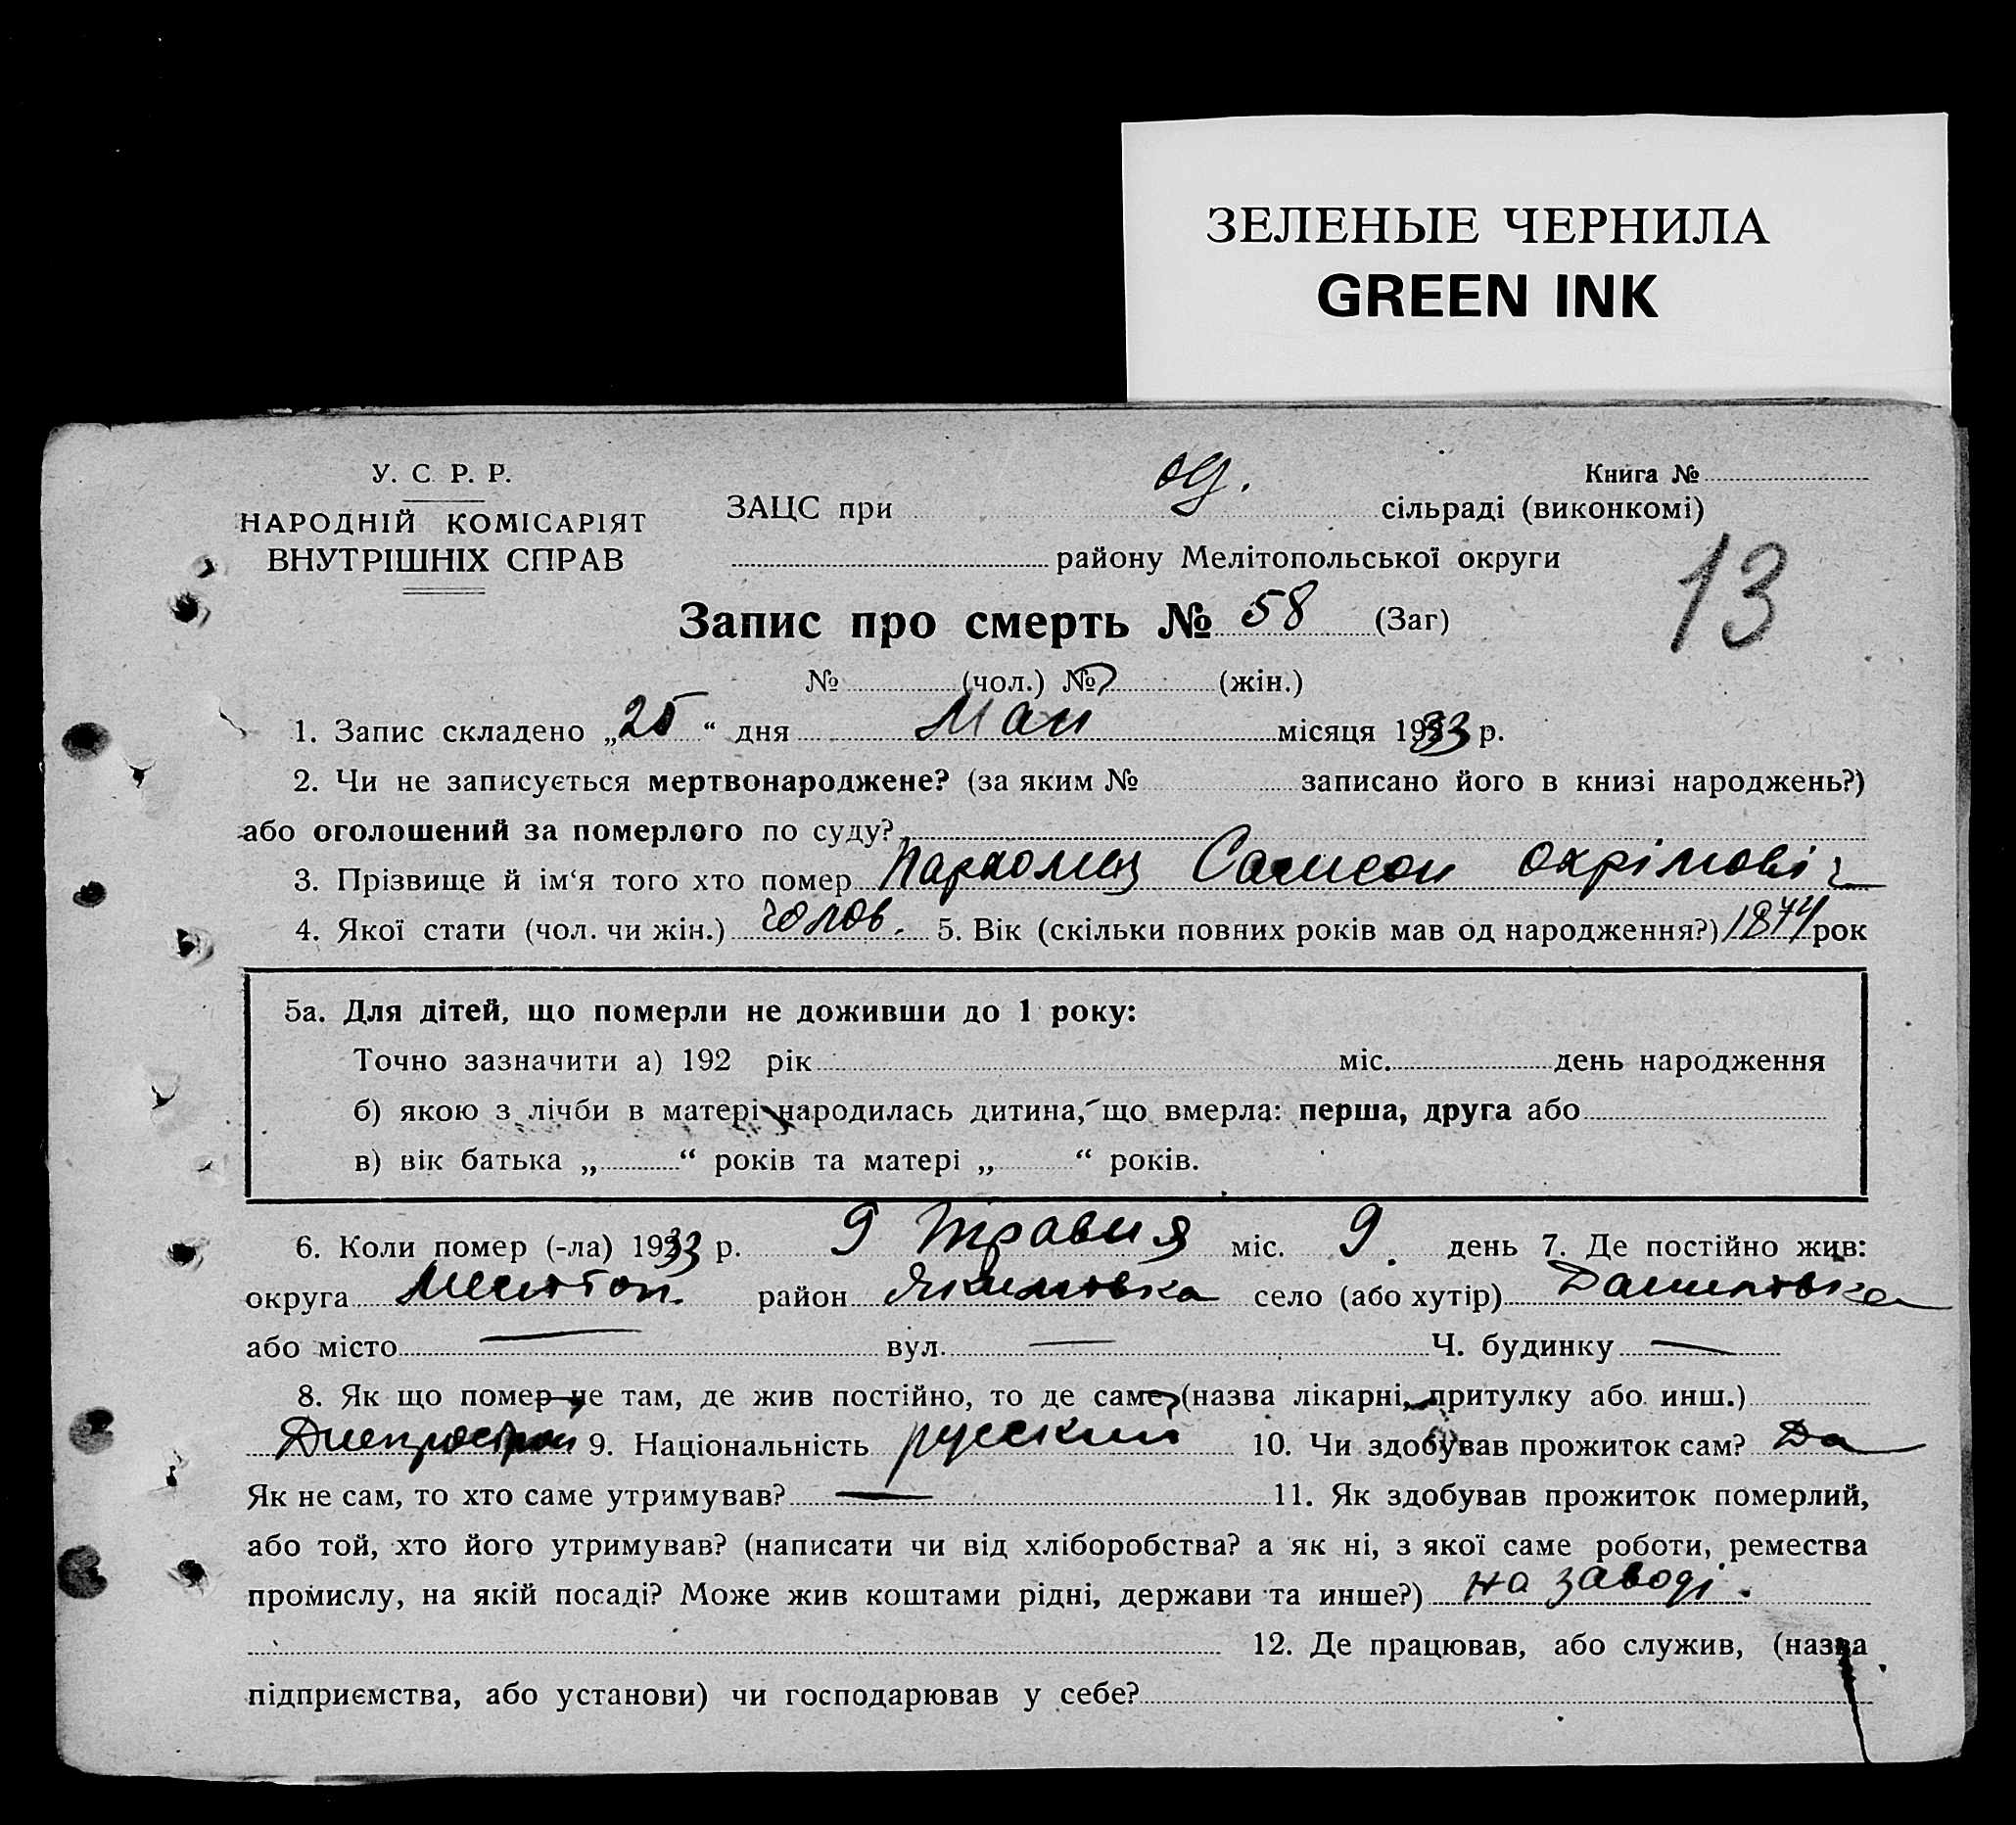 ЗЕЛЕНЫЕ ЧЕРНИЛА
GREEN INK
У. С. Р. Р.
НАРОДНІЙ КОМІСАРІЯТ
ВНУТРІШНІХ СПРАВ
Книга №
ЗАЦС при сільраді (виконкомі)
району Мелітопольської округи
13
Запис про смерть № 58 (Заг)
№ (чол.) № (жін.)
1. Запис складено „25“ дня Мая місяця 1933 р.
2. Чи не записується мертвонароджене? (за яким № записано його в книзі народжень?)
або оголошений за померлого по суду?
3. Прізвище й ім‘я того хто помер Пархомец Самсон Охрімовіч
4. Якої стати (чол. чи жін.) чолов. 5. Вік (скільки повних років мав од народження?) 1874 рок
5а. Для дітей, що померли не доживши до 1 року:
Точно зазначити а) 192 рік міс. день народження
б) якою з лічби в матері народилась дитина, що вмерла: перша, друга або
в) вік батька „ “ років та матері „ “ років.
6. Коли помер (-ла) 1933 р. 9 Травня міс. 9 день 7. Де постійно жив:
округа Мелітоп. район Якимовка село (або хутір) Даниловка
або місто — вул. — Ч. будинку —
8. Як що помер не там, де жив постійно, то де саме (назва лікарні, притулку або инш.)
Днепрострой 9. Національність русский 10. Чи здобував прожиток сам? Да
Як не сам, то хто саме утримував? — 11. Як здобував прожиток померлий,
або той, хто його утримував? (написати чи від хліборобства? а як ні, з якої саме роботи, ремества
промислу, на якій посаді? Може жив коштами рідні, держави та инше?) на заводі.
12. Де працював, або служив, (назва
підприємства, або установи) чи господарював у себе?